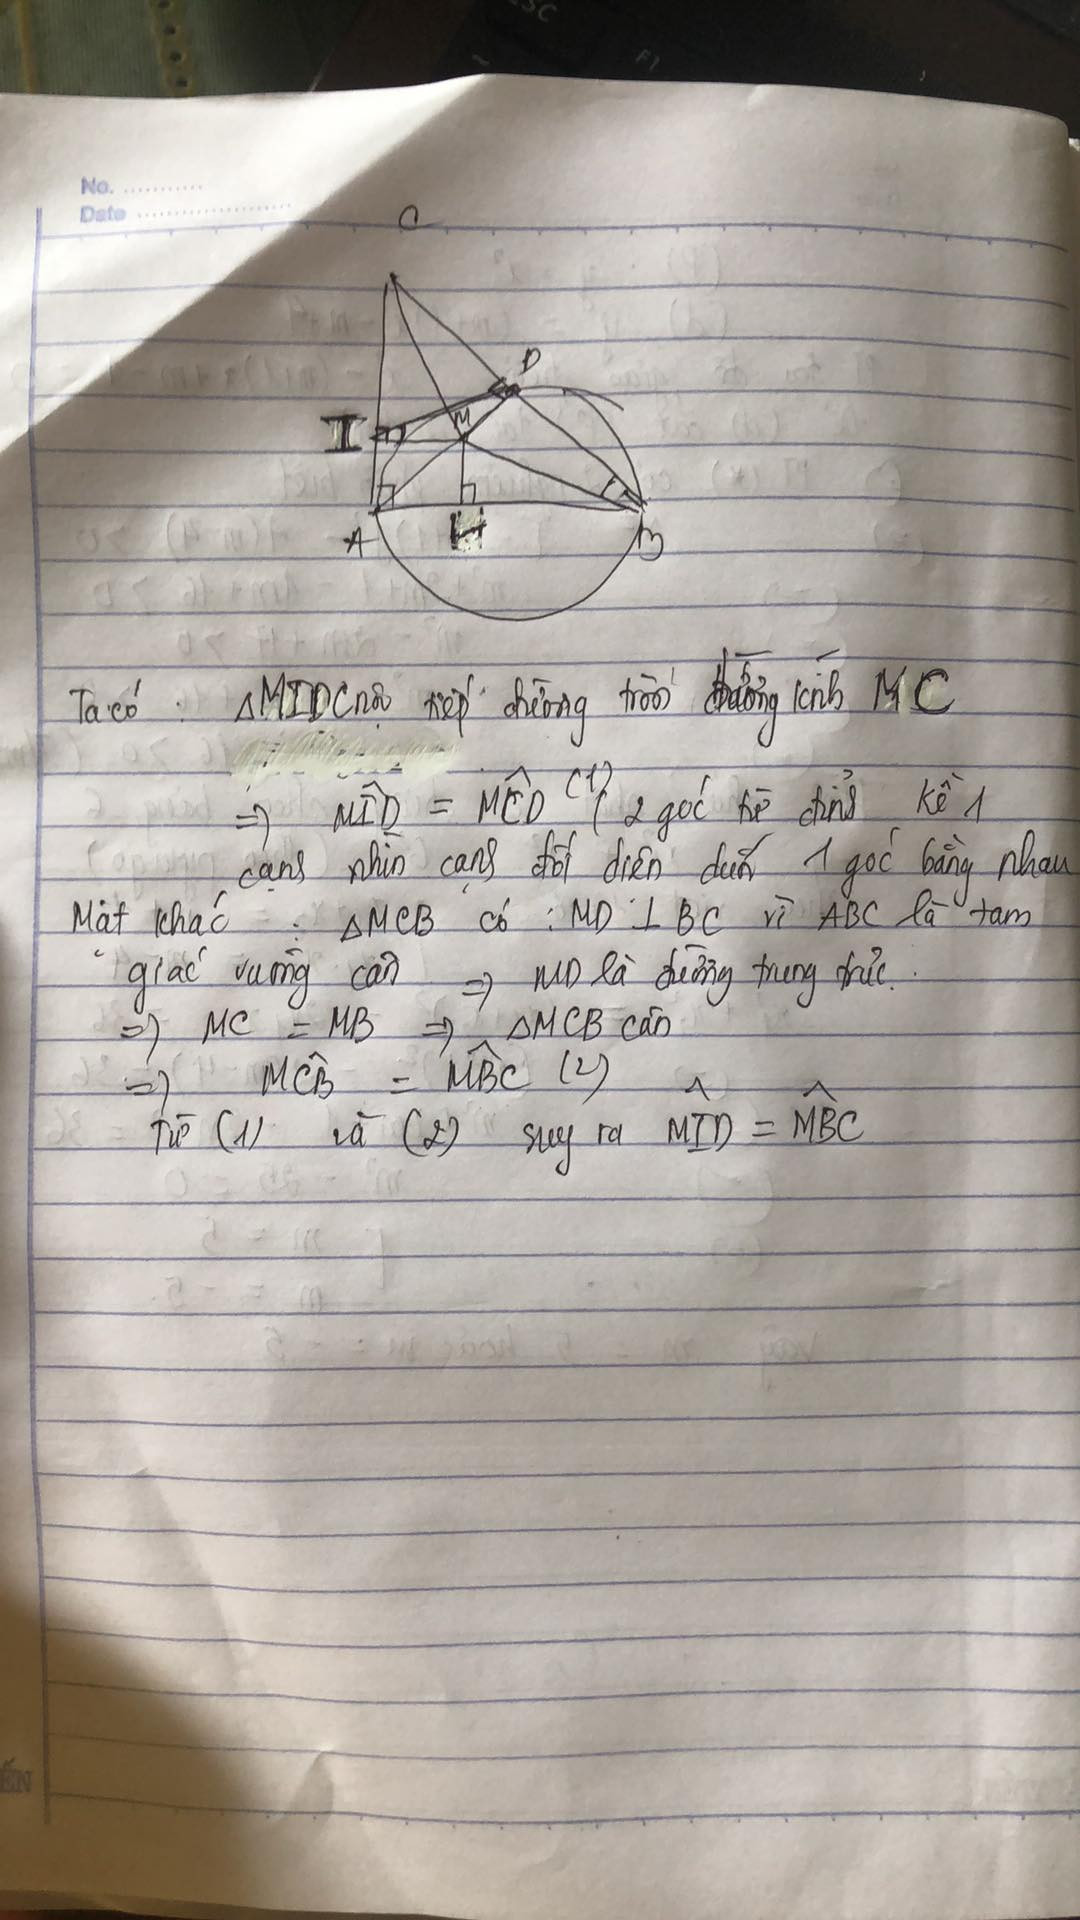 No. ...........
Date .....................
C
D
I
M
A
H
B
Ta có : △MIDC nội tiếp đường tròn đường kính MC
=> MÎD = MĈD (1) ( 2 góc từ đỉnh kề 1
cạnh nhìn cạnh đối diện dưới 1 góc bằng nhau
Mặt khác : △MCB có : MD ⊥ BC vì ABC là tam
giác vuông cân => MD là đường trung trực.
=> MC = MB => △MCB cân
=> MĈB = MB̂C (2)
Từ (1) và (2) suy ra MÎD = MB̂C